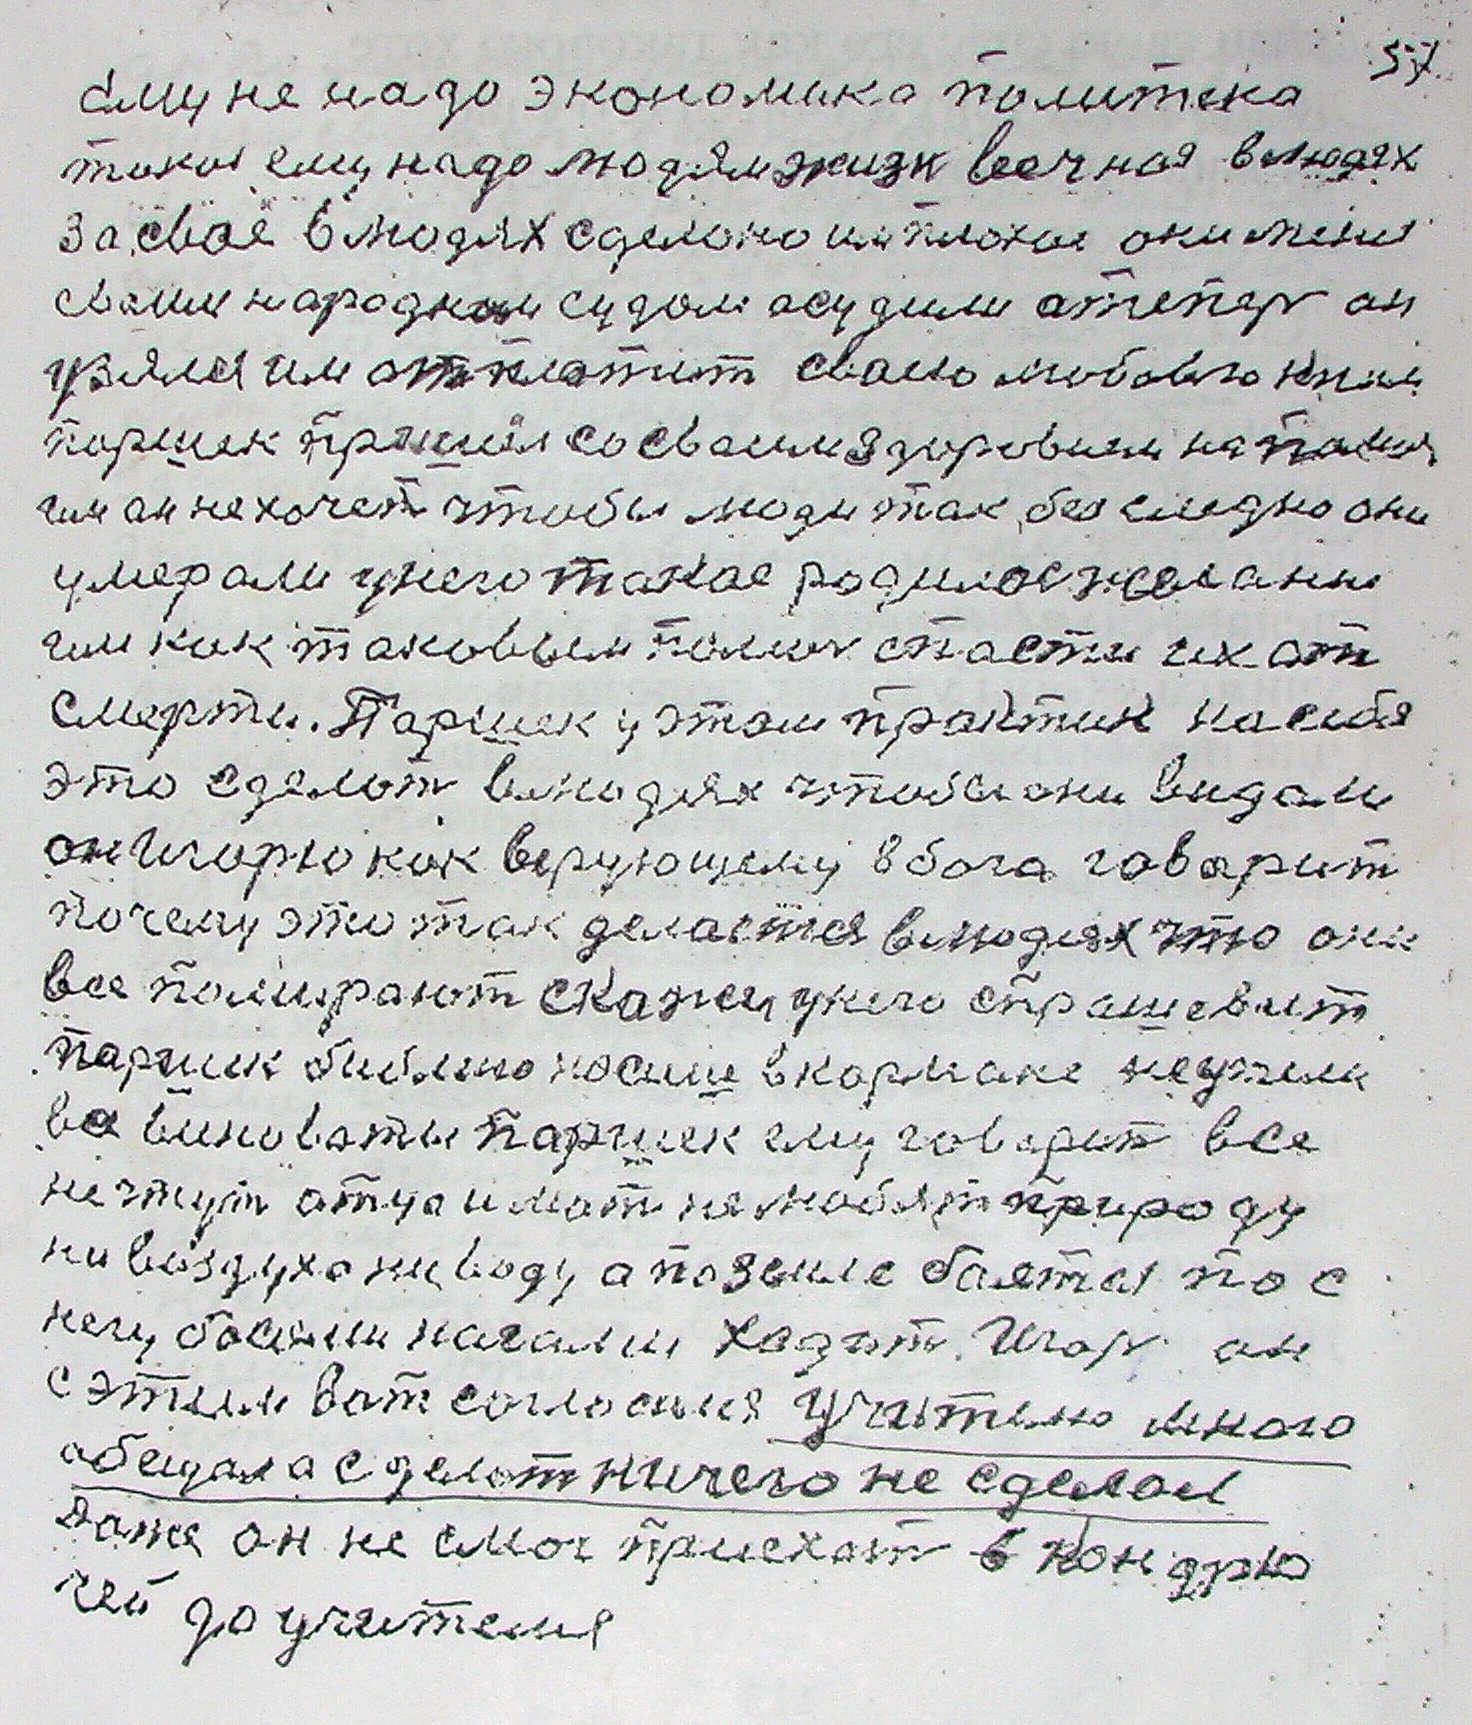 57
ему не надо экономика политека
такая ему надо людям жизн вечная в людях
за свое в людях сделоно им плохое они меня
своим народным судом осудили а тепер он
узялся им отплатит своею любовью к ним
паршек пришёл со своим здоровием на помощ
им он не хочет чтобы люди так бесследно они
умерали у него такое родилос желание
им как таковым помоч спасти их от
смерти. Паршек у этом практик на себя
это сделот в людях чтобы они видали
он Игорю как верующему в бога говарит
почему это так делается в людях что они
все помирают скажи у него спрашевает
паршек библию носиш в кормане неужели
все виноваты паршек ему говарит все
не чтут отца и мат не любят природу
ни воздуха ни воду а по земле боятся по с
негу босыми ногами ходит. Игор он
с этим вот согласился учителю много
абещал а сделат ничего не сделал
даже он не смог приехат в Кондрю
чей до учителя